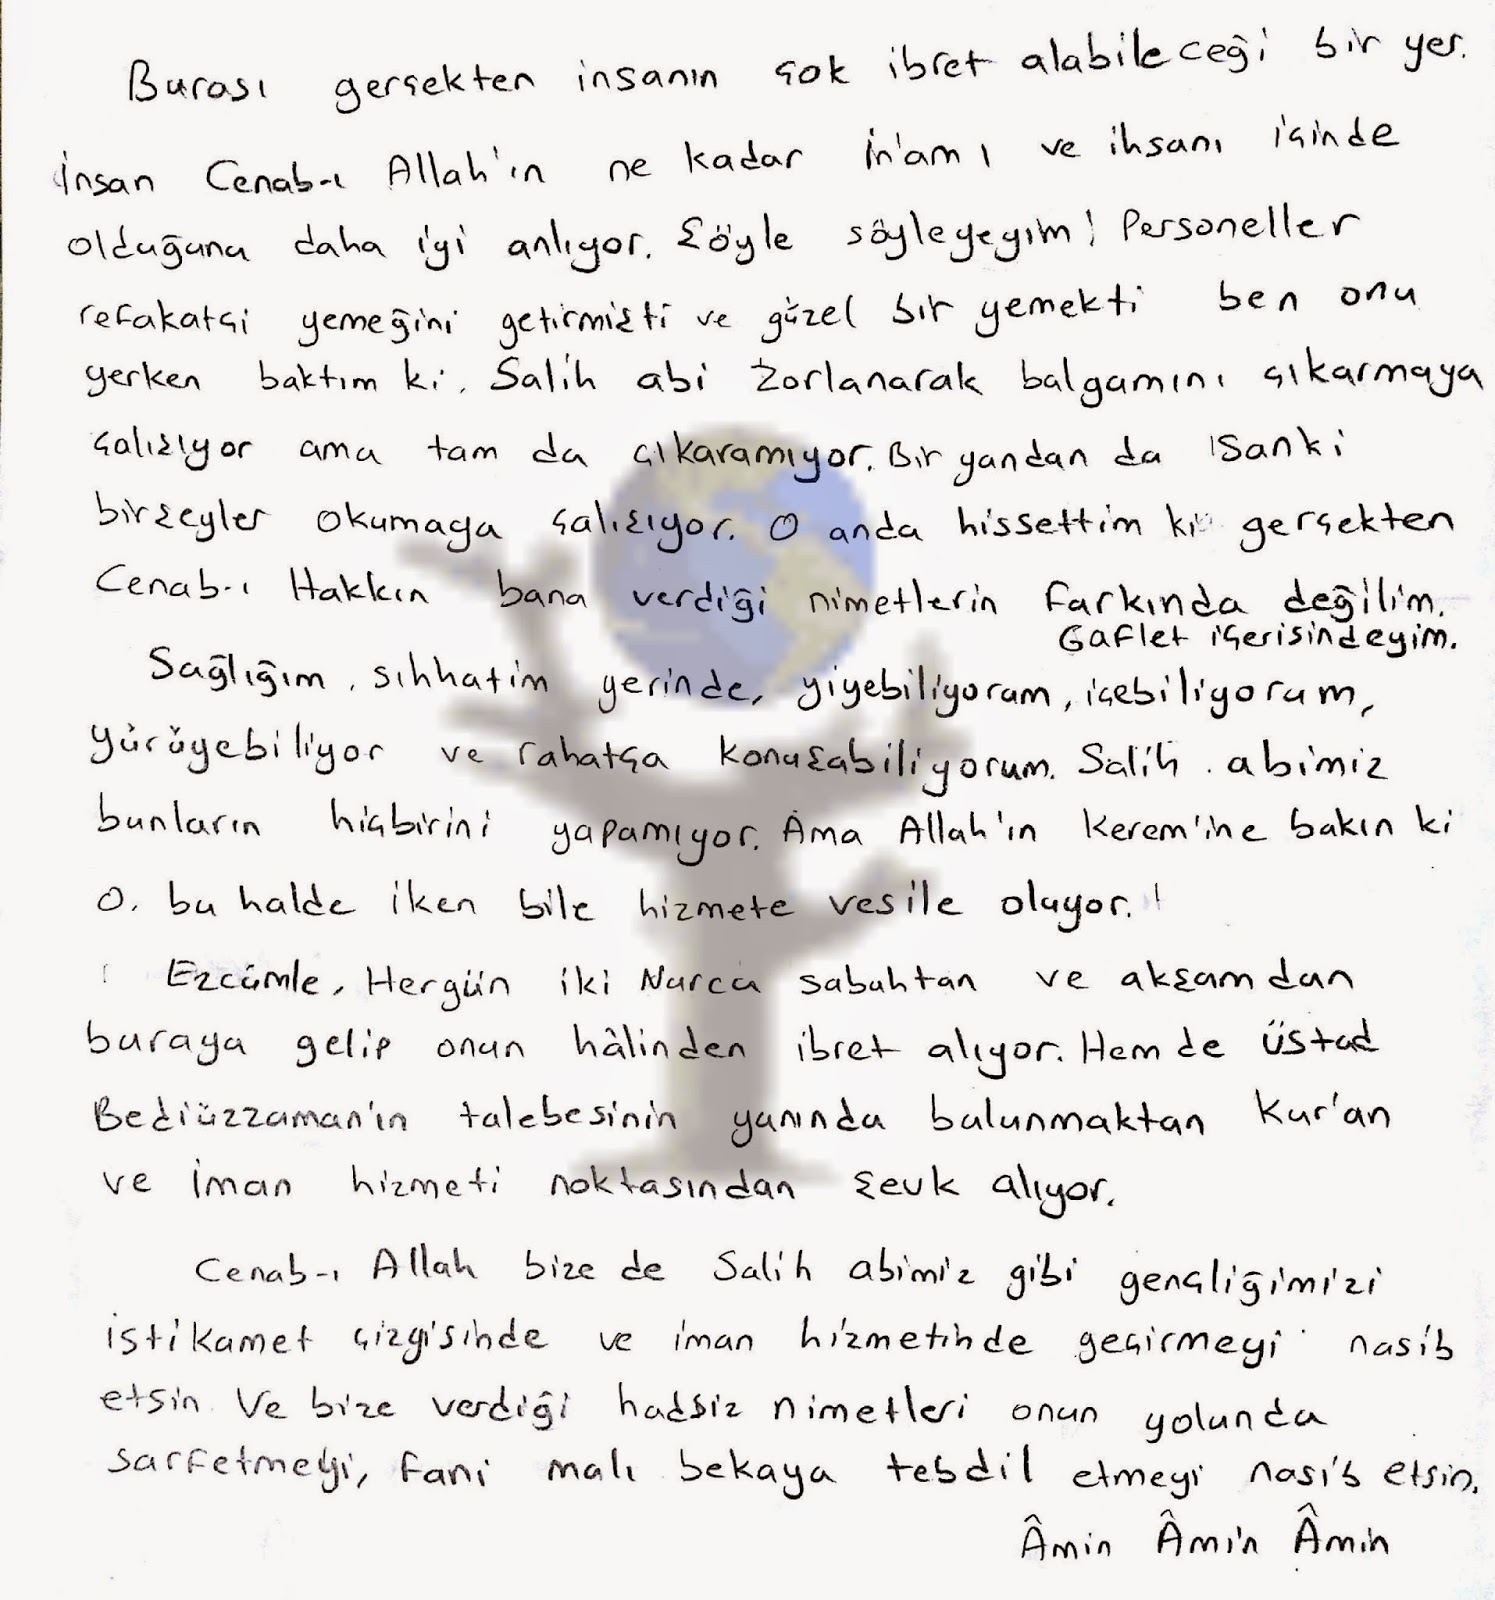 Burası gerçekten insanın çok ibret alabileceği bir yer.
İnsan Cenab-ı Allah'ın ne kadar İn'amı ve ihsanı içinde
olduğunu daha iyi anlıyor. Şöyle söyleyeyim! Personeller
refakatçi yemeğini getirmişti ve güzel bir yemekti ben onu
yerken baktım ki, Salih abi zorlanarak balgamını çıkarmaya
çalışıyor ama tam da çıkaramıyor. Bir yandan da sanki
birşeyler okumaya çalışıyor. O anda hissettim ki gerçekten
Cenab-ı Hakkın bana verdiği nimetlerin farkında değilim.
Gaflet içerisindeyim.
Sağlığım, sıhhatim yerinde, yiyebiliyorum, içebiliyorum,
yürüyebiliyor ve rahatça konuşabiliyorum. Salih abimiz
bunların hiçbirini yapamıyor. Ama Allah'ın Kerem'ine bakın ki
O, bu halde iken bile hizmete vesile oluyor.!
Ezcümle, Hergün iki Nurcu sabahtan ve akşamdan
buraya gelip onun hâlinden ibret alıyor. Hem de Üstad
Bediüzzaman'ın talebesinin yanında bulunmaktan Kur'an
ve iman hizmeti noktasından şevk alıyor.
Cenab-ı Allah bize de Salih abimiz gibi gençliğimizi
istikamet çizgisinde ve iman hizmetinde geçirmeyi nasib
etsin. Ve bize verdiği hadsiz nimetleri onun yolunda
sarfetmeyi, fani malı bekaya tebdil etmeyi nasib etsin.
Âmin Âmin Âmin